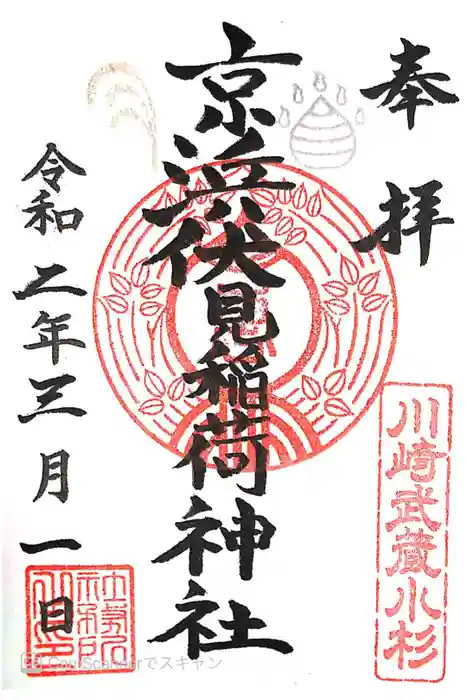 奉拝
川崎武蔵小杉
京浜伏見稲荷神社
令和二年三月一日
CamScannerでスキャン